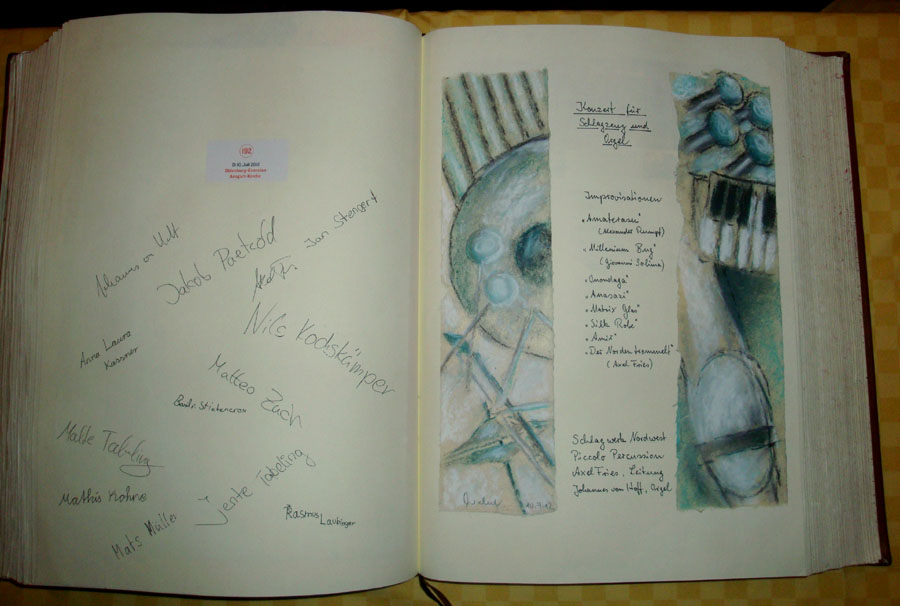 Di 10. Juli 2012
Oldenburg-Eversten
Ansgari-Kirche
Johannes von Hoff
Jakob Paetzold
Jan Stengert
Nils Kodskämper
Anna Laura
Kassner
Matteo Zach
Malte Tabeling
Mathis Kohne
Jente Tabeling
Mats Müller
Rasmus Laubinger
Konzert für
Schlagzeug und
Orgel
Improvisationen
„Amaterasu"
(Alexander Rumpf)
„Millenium Bug"
(Giovanni Sollima)
„Onondaga"
„Anasazi"
„Matrix Glas"
„Silk Robe"
„Amir"
„Der Norden trommelt"
(Axel Fries)
Schlagwerk Nordwest
Piccolo Percussion
Axel Fries, Leitung
Johannes von Hoff, Orgel
10.7.12